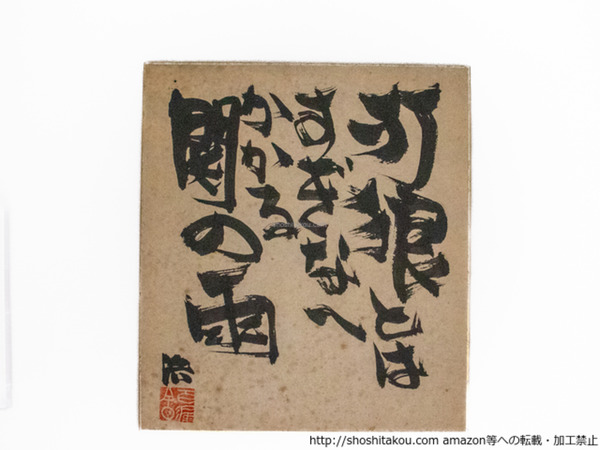 狼とは
すぎなへ
かかる
の雨
治
http://shoshitakou.com amazon等への転載・加工禁止